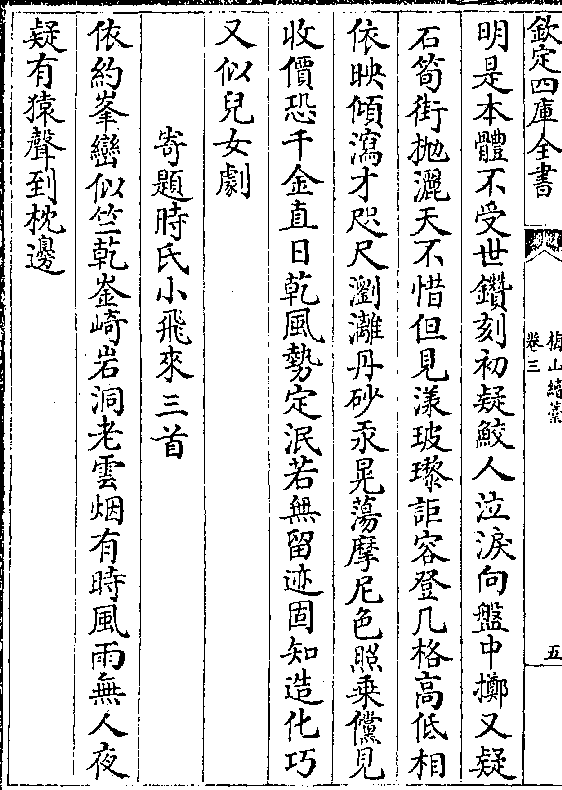 欽定四庫全書
梅山續藁
卷三
五
明是本體不受世鑽刻初疑鮫人泣淚向盤中擲又疑
石筍街抛灑天不惜但見漾玻瓈詎容登几格高低相
依映傾瀉才咫尺瀏灕丹砂汞晃蕩摩尼色照乗儻見
收價恐千金直日乾風勢定泯若無留迹固知造化巧
又似兒女劇
寄題時氏小飛來三首
依約峯巒似竺乾崟崎岩洞老雲烟有時風雨無人夜
疑有猿聲到枕邊